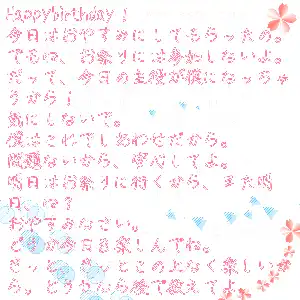 Happybirthday！
今日はおやすみにしてもらったの。
でもね、お祭りには参加しないよ。
だって、今日の主役が僕になっちゃ
うから！
気にしないで。
僕はこれでしあわせだから。
問題ないから、安心してよ。
明日はお祭りに行くから、また明
日 ね？
おやすみなさい。
どうか今日を楽しんでね。
きっと この上なく楽しい
ら。どうだったか後で教えてよ。